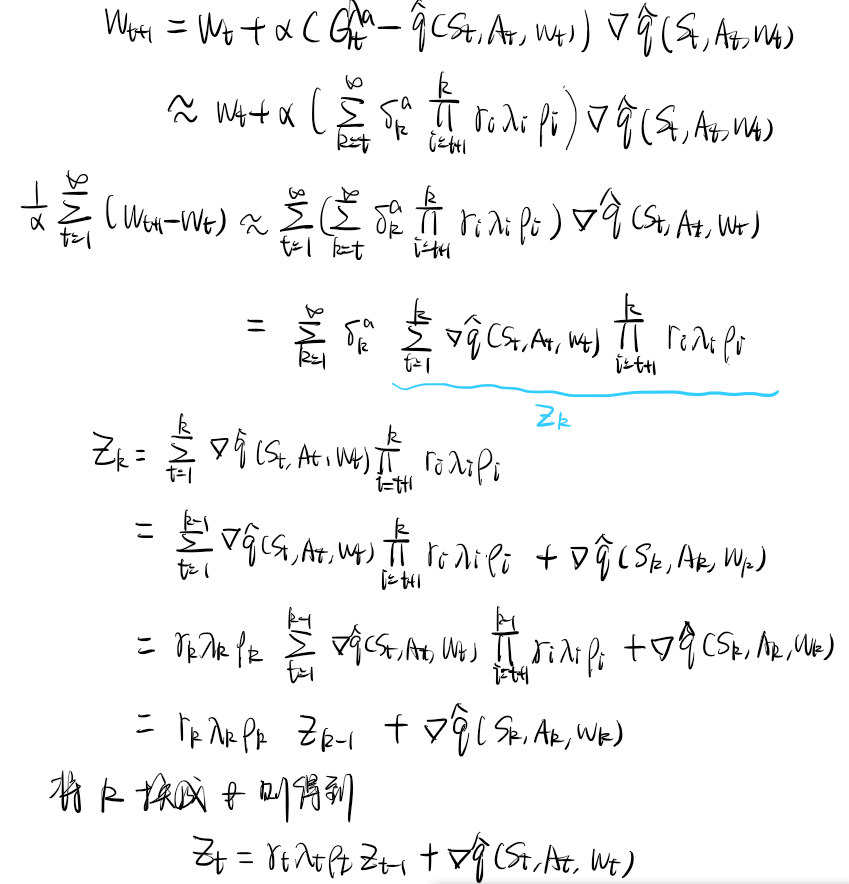 W_{t+1} = W_t + α (G_t^{λa} − q̂(S_t, A_t, W_t)) ∇q̂(S_t, A_t, W_t)
≈ W_t + α (∑_{k=t}^{∞} δ_k^a ∏_{i=t+1}^{k} γ_i λ_i ρ_i) ∇q̂(S_t, A_t, W_t)
1/α ∑_{t=1}^{∞} (W_{t+1} − W_t) ≈ ∑_{t=1}^{∞} (∑_{k=t}^{∞} δ_k^a ∏_{i=t+1}^{k} γ_i λ_i ρ_i) ∇q̂(S_t, A_t, W_t)
= ∑_{k=1}^{∞} δ_k^a ∑_{t=1}^{k} ∇q̂(S_t, A_t, W_t) ∏_{i=t+1}^{k} γ_i λ_i ρ_i
Z_k
Z_k = ∑_{t=1}^{k} ∇q̂(S_t, A_t, W_t) ∏_{i=t+1}^{k} γ_i λ_i ρ_i
= ∑_{t=1}^{k-1} ∇q̂(S_t, A_t, W_t) ∏_{i=t+1}^{k} γ_i λ_i ρ_i + ∇q̂(S_k, A_k, W_k)
= γ_k λ_k ρ_k ∑_{t=1}^{k-1} ∇q̂(S_t, A_t, W_t) ∏_{i=t+1}^{k-1} γ_i λ_i ρ_i + ∇q̂(S_k, A_k, W_k)
= γ_k λ_k ρ_k Z_{k-1} + ∇q̂(S_k, A_k, W_k)
将 k 换成 t 则得到
Z_t = γ_t λ_t ρ_t Z_{t-1} + ∇q̂(S_t, A_t, W_t)